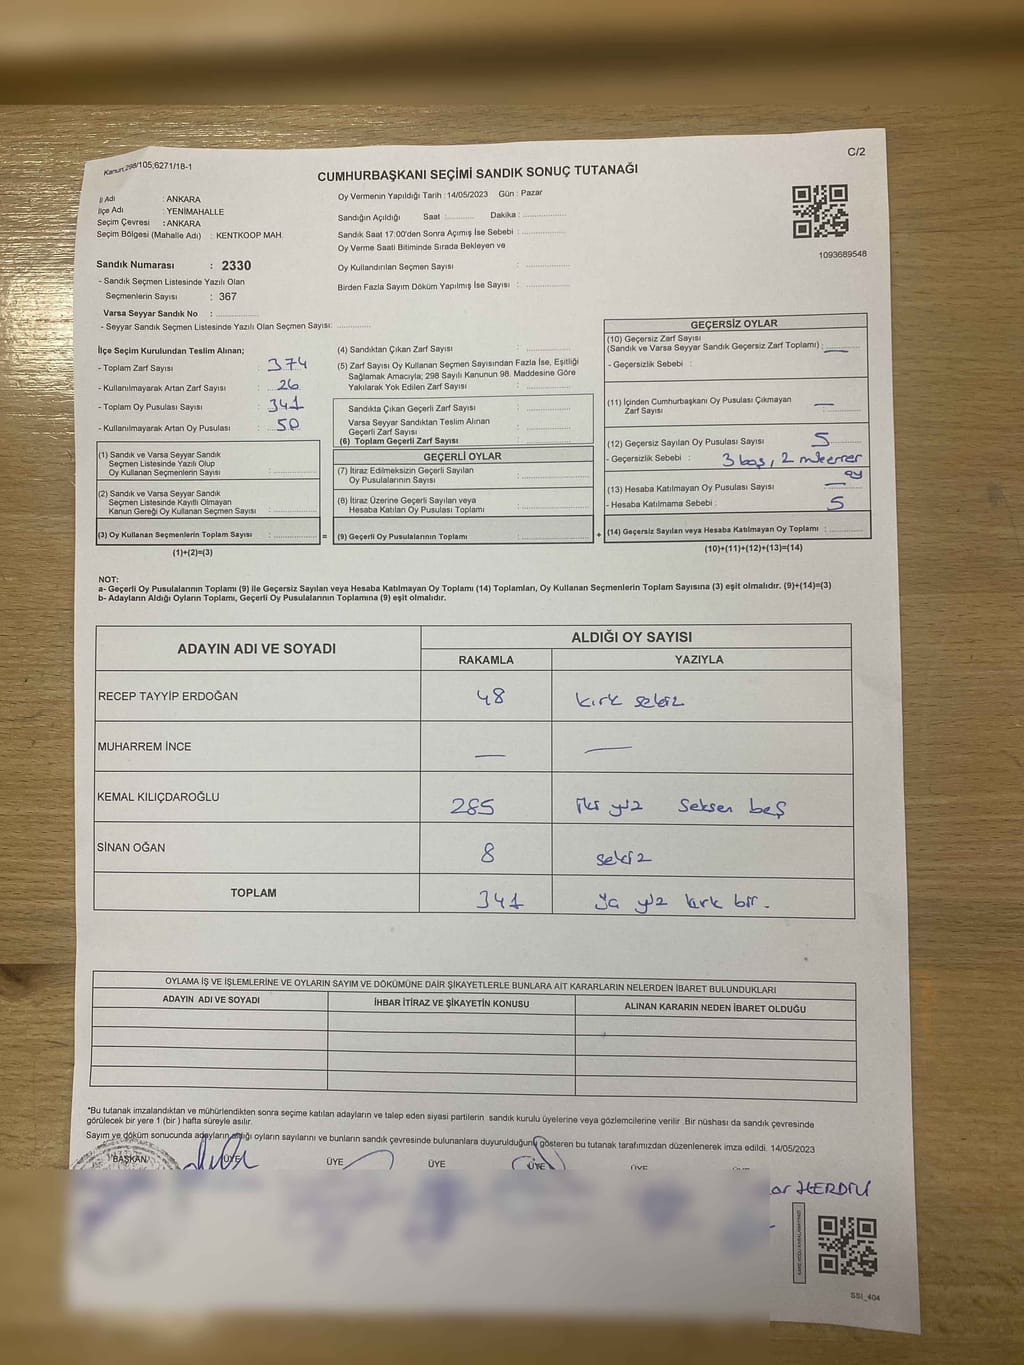 Kanun:298/105;6271/18-1
C/2
CUMHURBAŞKANI SEÇİMİ SANDIK SONUÇ TUTANAĞI
İl Adı : ANKARA
İlçe Adı : YENİMAHALLE
Seçim Çevresi : ANKARA
Seçim Bölgesi (Mahalle Adı) : KENTKOOP MAH.
Sandık Numarası : 2330
- Sandık Seçmen Listesinde Yazılı Olan
Seçmenlerin Sayısı : 367
Varsa Seyyar Sandık No : ..............
- Seyyar Sandık Seçmen Listesinde Yazılı Olan Seçmen Sayısı: ............
Oy Vermenin Yapıldığı Tarih : 14/05/2023 Gün : Pazar
Sandığın Açıldığı Saat : .......... Dakika : ..............
Sandık Saat 17:00'den Sonra Açımış İse Sebebi : ..............
Oy Verme Saati Bitiminde Sırada Bekleyen ve
Oy Kullandırılan Seçmen Sayısı : ..............
Birden Fazla Sayım Döküm Yapılmış İse Sayısı : ..............
1093689548
İlçe Seçim Kurulundan Teslim Alınan;
- Toplam Zarf Sayısı : 374
- Kullanılmayarak Artan Zarf Sayısı : 26
- Toplam Oy Pusulası Sayısı : 341
- Kullanılmayarak Artan Oy Pusulası : 50
(1) Sandık ve Varsa Seyyar Sandık
Seçmen Listesinde Yazılı Olup
Oy Kullanan Seçmenlerin Sayısı : ..............
(2) Sandık ve Varsa Seyyar Sandık
Seçmen Listesinde Kayıtlı Olmayan
Kanun Gereği Oy Kullanan Seçmen Sayısı : ..............
(3) Oy Kullanan Seçmenlerin Toplam Sayısı : .............. =
(1)+(2)=(3)
(4) Sandıktan Çıkan Zarf Sayısı : ..............
(5) Zarf Sayısı Oy Kullanan Seçmen Sayısından Fazla İse, Eşitliği
Sağlamak Amacıyla; 298 Sayılı Kanunun 98. Maddesine Göre
Yakılarak Yok Edilen Zarf Sayısı : ..............
Sandıkta Çıkan Geçerli Zarf Sayısı : ..............
Varsa Seyyar Sandıktan Teslim Alınan
Geçerli Zarf Sayısı : ..............
(6) Toplam Geçerli Zarf Sayısı : ..............
GEÇERLİ OYLAR
(7) İtiraz Edilmeksizin Geçerli Sayılan
Oy Pusulalarının Sayısı : ..............
(8) İtiraz Üzerine Geçerli Sayılan veya
Hesaba Katılan Oy Pusulası Toplamı : ..............
(9) Geçerli Oy Pusulalarının Toplamı : .............. +
GEÇERSİZ OYLAR
(10) Geçersiz Zarf Sayısı
(Sandık ve Varsa Seyyar Sandık Geçersiz Zarf Toplamı) : —
- Geçersizlik Sebebi :
(11) İçinden Cumhurbaşkanı Oy Pusulası Çıkmayan
Zarf Sayısı : —
(12) Geçersiz Sayılan Oy Pusulası Sayısı : 5
- Geçersizlik Sebebi : 3 boş, 2 mükerrer
oy
(13) Hesaba Katılmayan Oy Pusulası Sayısı : —
- Hesaba Katılmama Sebebi : 5
(14) Geçersiz Sayılan veya Hesaba Katılmayan Oy Toplamı : ..............
(10)+(11)+(12)+(13)=(14)
NOT:
a- Geçerli Oy Pusulalarının Toplamı (9) ile Geçersiz Sayılan veya Hesaba Katılmayan Oy Toplamı (14) Toplamları, Oy Kullanan Seçmenlerin Toplam Sayısına (3) eşit olmalıdır. (9)+(14)=(3)
b- Adayların Aldığı Oyların Toplamı, Geçerli Oy Pusulalarının Toplamına (9) eşit olmalıdır.
ADAYIN ADI VE SOYADI ALDIĞI OY SAYISI
RAKAMLA YAZIYLA
RECEP TAYYİP ERDOĞAN 48 kırk sekiz
MUHARREM İNCE — —
KEMAL KILIÇDAROĞLU 285 İki yüz seksen beş
SİNAN OĞAN 8 sekiz
TOPLAM 341 yüz kırk bir.
OYLAMA İŞ VE İŞLEMLERİNE VE OYLARIN SAYIM VE DÖKÜMÜNE DAİR ŞİKAYETLERLE BUNLARA AİT KARARLARIN NELERDEN İBARET BULUNDUKLARI
ADAYIN ADI VE SOYADI İHBAR İTİRAZ VE ŞİKAYETİN KONUSU ALINAN KARARIN NEDEN İBARET OLDUĞU
*Bu tutanak imzalandıktan ve mühürlendikten sonra seçime katılan adayların ve talep eden siyasi partilerin sandık kurulu üyelerine veya gözlemcilerine verilir. Bir nüshası da sandık çevresinde
görülecek bir yere 1 (bir) hafta süreyle asılır.
Sayım ve döküm sonucunda adayların aldığı oyların sayılarını ve bunların sandık çevresinde bulunanlara duyurulduğunu gösteren bu tutanak tarafımızdan düzenlenerek imza edildi. 14/05/2023
BAŞKAN ÜYE ÜYE ÜYE ÜYE
SSI_404